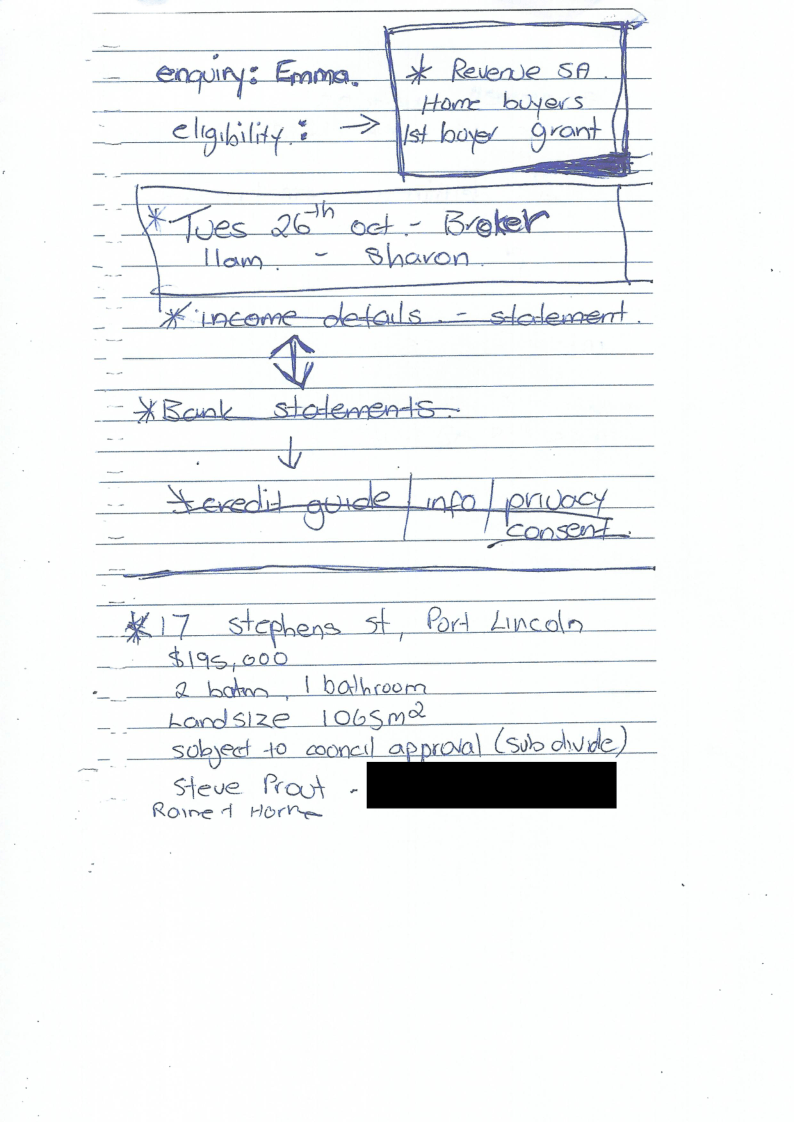 enquiry: Emma.
eligibility: →
* Revenue SA.
Home buyers
1st buyer grant
* Tues 26th oct - Broker
11am. - Sharon.
* income details. - statement.
* Bank statements.
* credit guide | info | privacy
consent.
* 17 Stephens st, Port Lincoln
$195,000
2 bdrm, 1 bathroom
Landsize 1065m²
subject to council approval (sub divide)
Steve Prout -
Raine & Horne